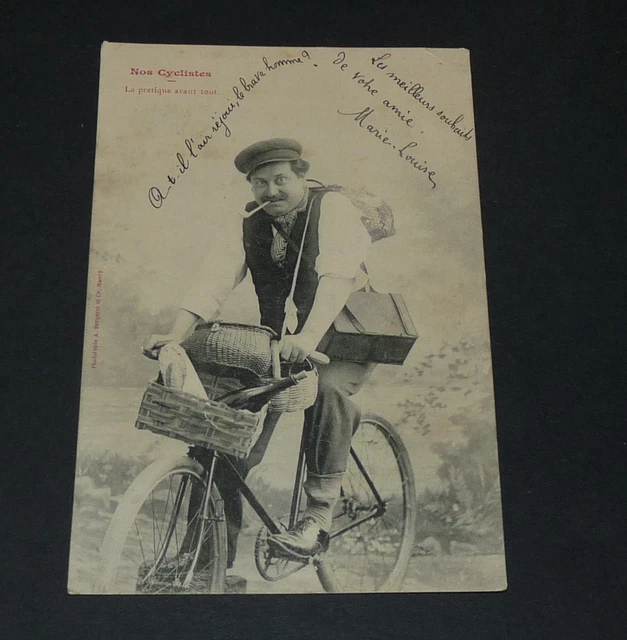 Nos Cyclistes
La pratique avant tout.
A-t-il l'air réjoui, le brave homme ?
Les meilleurs souhaits
de votre amie.
Marie-Louise
Phototypie A. Bergeret et Cie, Nancy